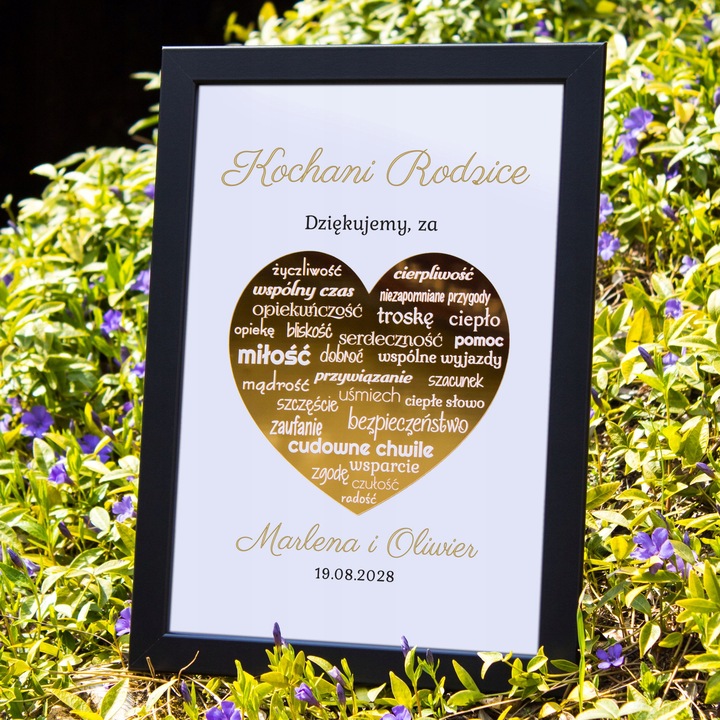 Kochani Rodzice
Dziękujemy, za
życzliwość cierpliwość
wspólny czas niezapomniane przygody
opiekuńczość troskę ciepło
opiekę bliskość serdeczność pomoc
miłość dobroć wspólne wyjazdy
mądrość przywiązanie szacunek
szczęście uśmiech ciepłe słowo
zaufanie bezpieczeństwo
cudowne chwile
zgodę wsparcie
czułość
radość
Marlena i Oliwier
19.08.2028